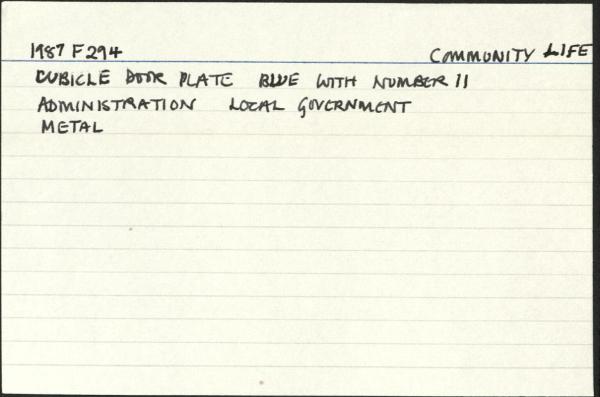 1987 F294 COMMUNITY LIFE
CUBICLE DOOR PLATE BLUE WITH NUMBER 11
ADMINISTRATION LOCAL GOVERNMENT
METAL